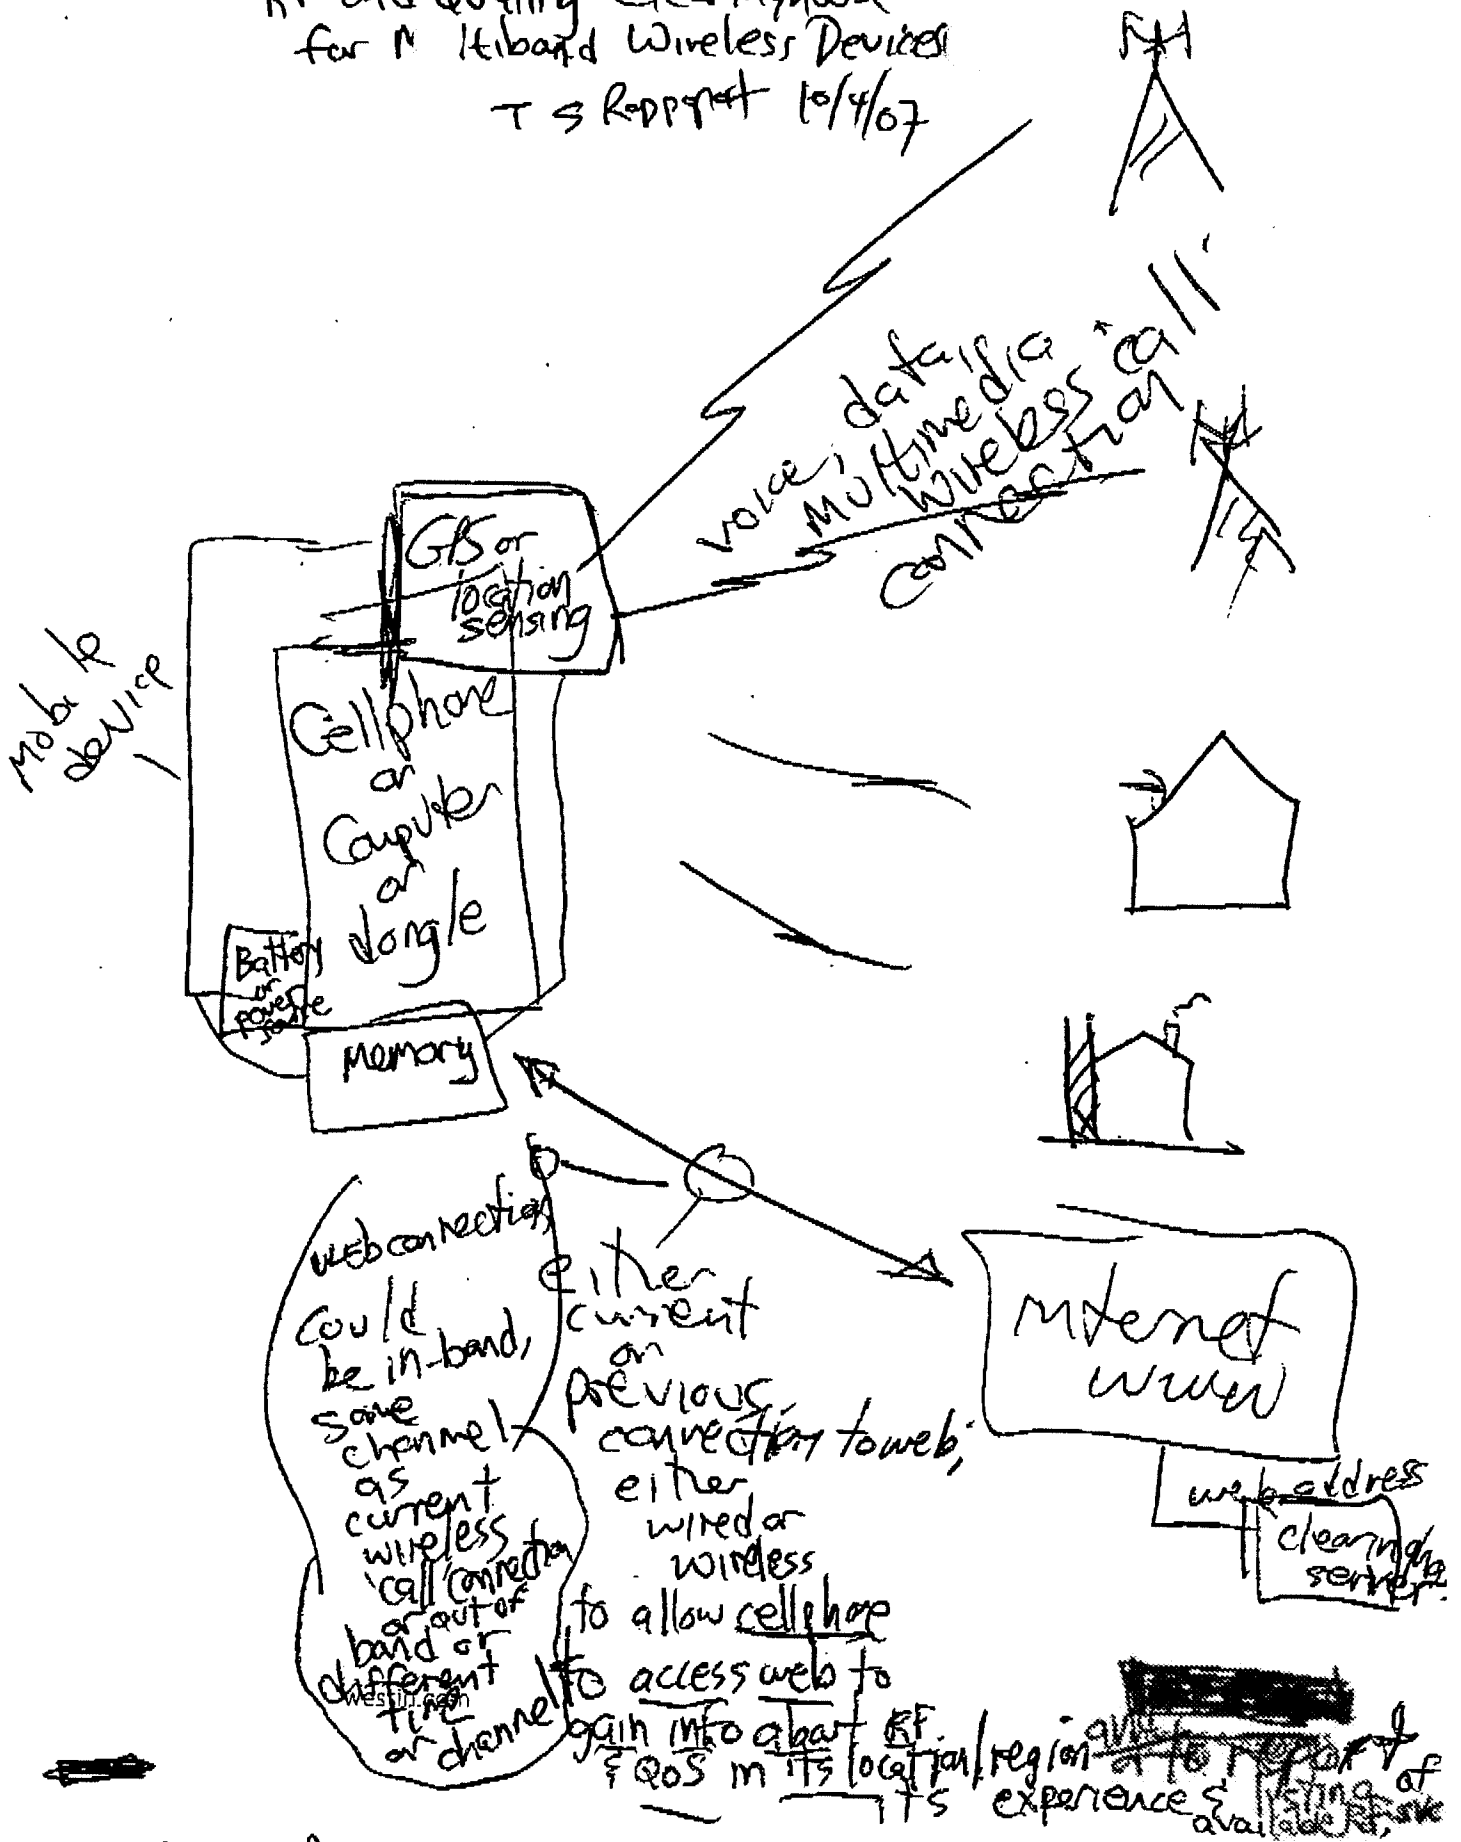 for M ltiband Wireless Devices
T S Rappaport 10/4/07
voice, data,
multimedia
wireless "call"
connection
GPS or
location
sensing
Mobile
device
Cellphone
or
Computer
or
dongle
Battery
or
power
source
Memory
web connection
could
be in-band,
same
channel
as
current
wireless
'call' connection
or out of
band or
different
time
or channel
westin.com
either
current
or
previous
connection to web,
either
wired or
wireless
to allow cellphone
to access web to
gain info about RF
& QoS in its location/region
to report of
its experience &
available RF
Internet
WWW
web address
clearinghse
server.